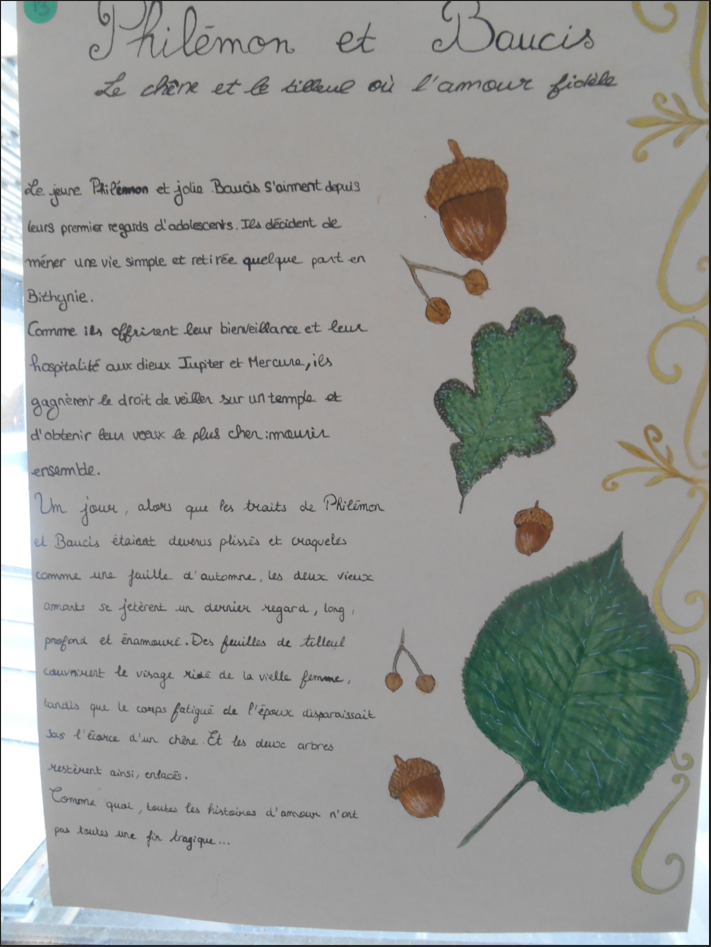 Philémon et Baucis
Le chêne et le tilleul où l'amour fidèle
Le jeune Philémon et jolie Baucis s'aiment depuis
leurs premier regards d'adolescents. Ils décident de
méner une vie simple et retirée quelque part en
Bithynie.
Comme ils offrirent leur bienveillance et leur
hospitalité aux dieux Jupiter et Mercure, ils
gagnèrent le droit de veiller sur un temple et
d'obtenir leur voeux le plus cher : mourir
ensemble.
Un jour, alors que les traits de Philémon
et Baucis étaient devenus plissés et craquelés
comme une feuille d'automne, les deux vieux
amants se jetèrent un dernier regard, long,
profond et énamouré. Des feuilles de tilleul
couvrirent le visage ridé de la vielle femme,
tandis que le corps fatigué de l'époux disparaissait
sous l'écorce d'un chêne. Et les deux arbres
restèrent ainsi, enlacés.
Comme quoi, toutes les histoires d'amour n'ont
pas toutes une fin tragique...